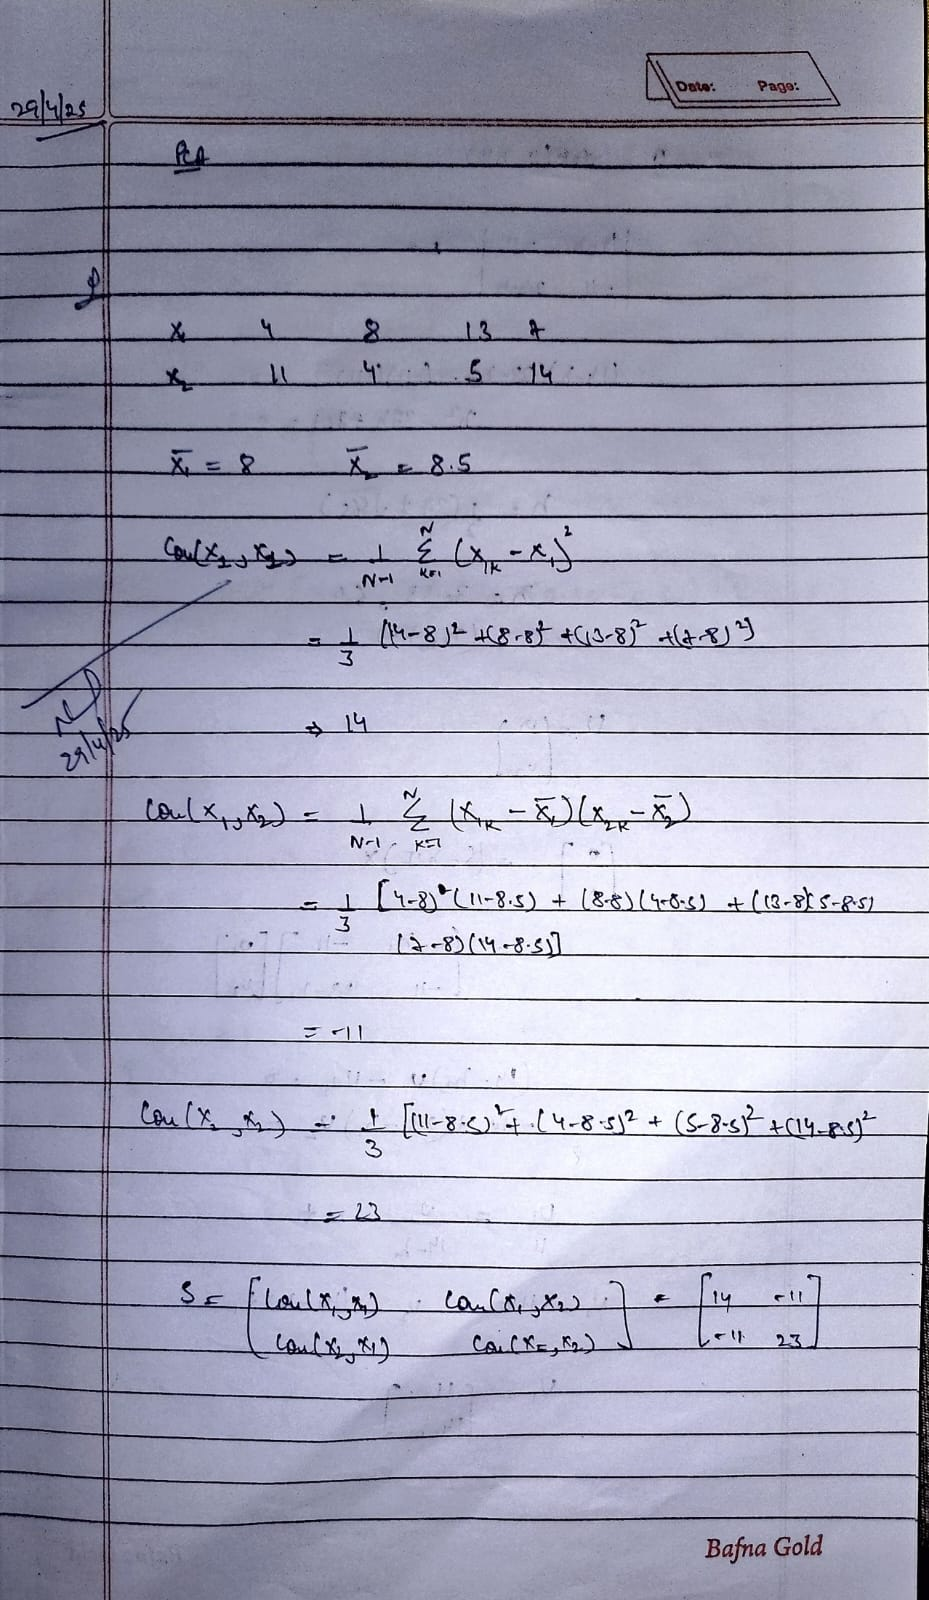 Date: Page:
29/4/25
PCA
Q
X₁ 4 8 13 7
X₂ 11 4 5 14
X̄₁ = 8 X̄₂ = 8.5
Cov(X₁, X₁) = 1/N-1 Σ_{k=1}^{N} (X₁ₖ - X₁)²
= 1/3 [(4-8)² + (8-8)² + (13-8)² + (7-8)²]
⇒ 14
29/4/25
Cov(X₁, X₂) = 1/N-1 Σ_{k=1}^{N} (X₁ₖ - X̄₁)(X₂ₖ - X̄₂)
= 1/3 [4-8)(11-8.5) + (8-8)(4-8.5) + (13-8)(5-8.5)
(7-8)(14-8.5)]
= -11
Cov(X₂, X₂) = 1/3 [(11-8.5)² + (4-8.5)² + (5-8.5)² + (14-8.5)²
= 23
S = [Cov(X₁, X₁) Cov(X₁, X₂) = [14 -11
Cov(X₂, X₁) Cov(X₂, X₂)] -11 23]
Bafna Gold